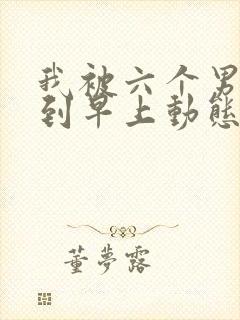 我被六个男
到早上動態
董夢露